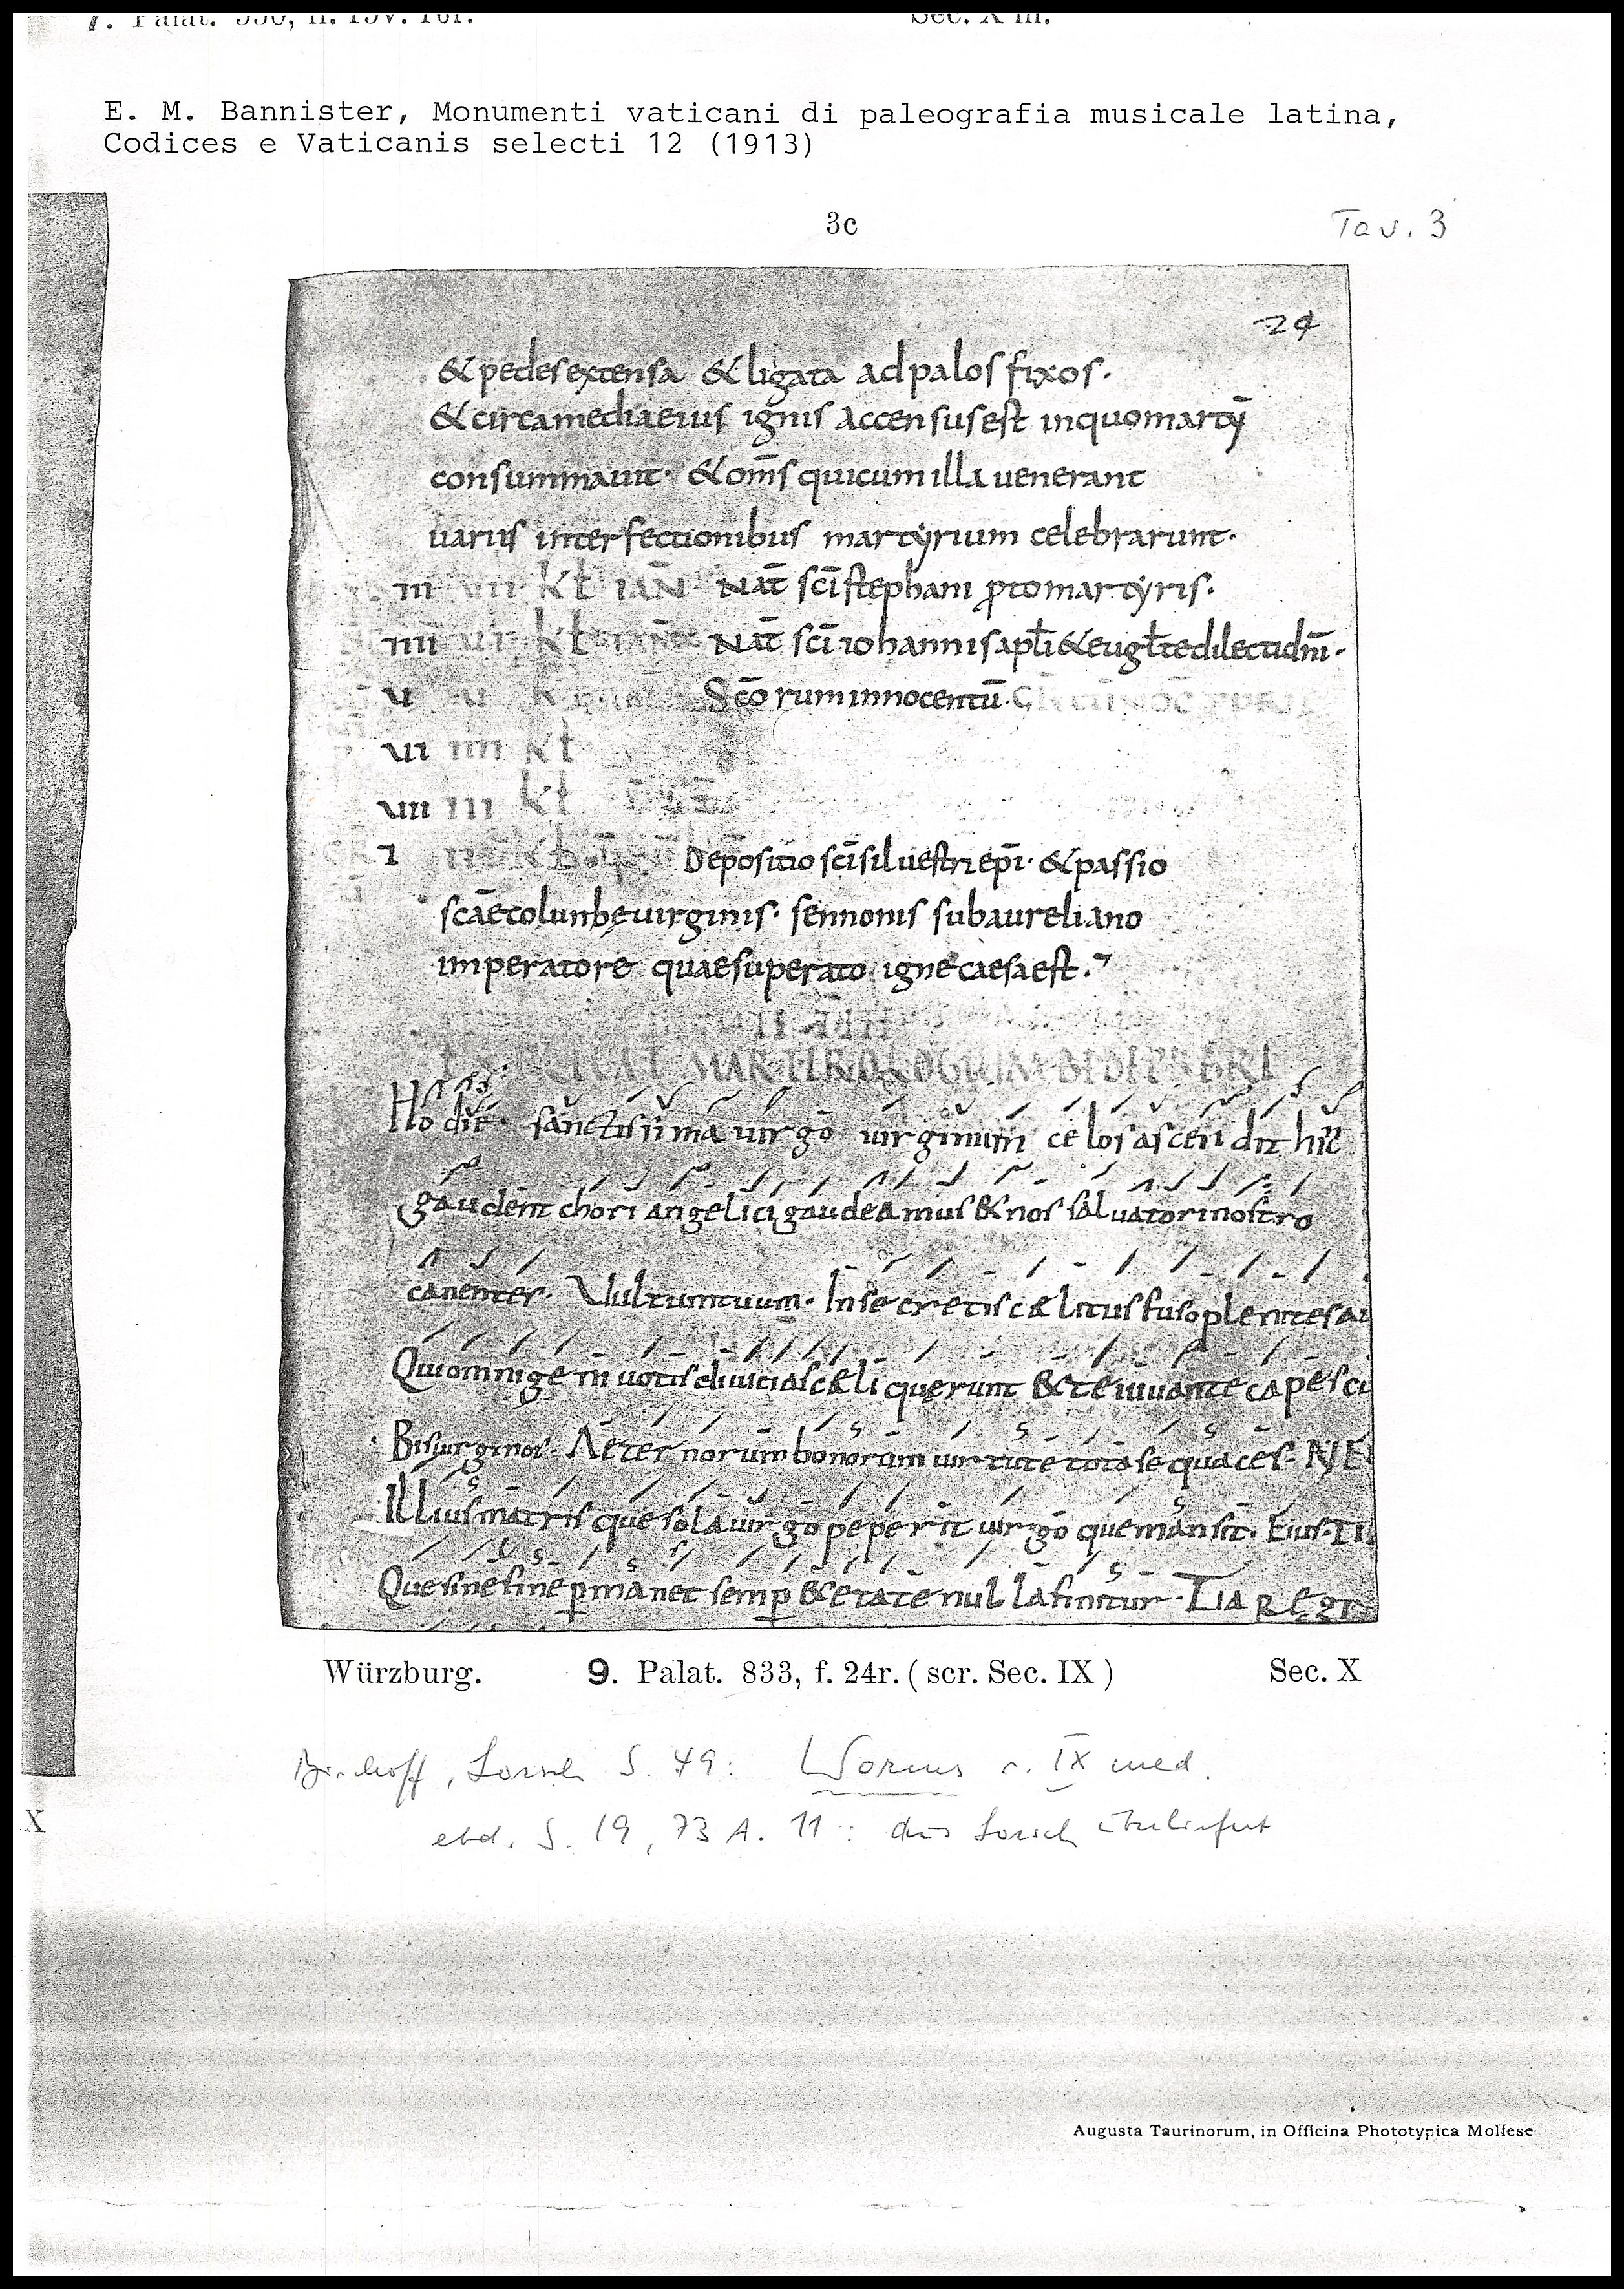 7. Palat. 550, ff. 15v. 16r. Sec. X in.
E. M. Bannister, Monumenti vaticani di paleografia musicale latina,
Codices e Vaticanis selecti 12 (1913)
3c Tav. 3
24
& pedes extensa & ligata ad palos fixos.
& circa media eius ignis accensus est in quo martẏ
consummauit. & om̄s qui cum illa uenerant
uariis interfectionibus martyrium celebrarunt.
III VII KL IAN NAT sc̄i stephani ptomartyris.
IIII VI KL IAN NAT sc̄i iohannis apli & eugl̄te dilecti dn̄i.
U U K Sc̄orum innocentū.
VI IIII KL
VII III KL
Depositio sc̄i siluestri ep̄i. & passio
sc̄ae colunbę uirginis. sennonis sub aureliano
imperatore quae superato igne caesa est.
EXPLICIAT MARTIROLOGIUM BEDE PRBRI
Hodie sanctissima uirgo uirginum celos ascendit hic
gaudent chori angelici gaudeamus & nos saluatori nostro
canentes. Uultum tuum. In secretis cælitus fuso plenites
Qui omnigeni uotis diuicias cæli querunt & te iuuante capesci
Aeternorum bonorum uirtute tota sequaces.
Illius matris que sola uirgo peperit uirgo que mansit. Eius
Que sine fine pmanet semp & etate nulla finitur.
Würzburg. 9. Palat. 833, f. 24r. (scr. Sec. IX) Sec. X
Bischoff, Lorsch S. 49: Worms s. IX med.
X
ebd. S. 19, 73 A. 11: aus Lorsch überliefert
Augusta Taurinorum, in Officina Phototypica Molfese